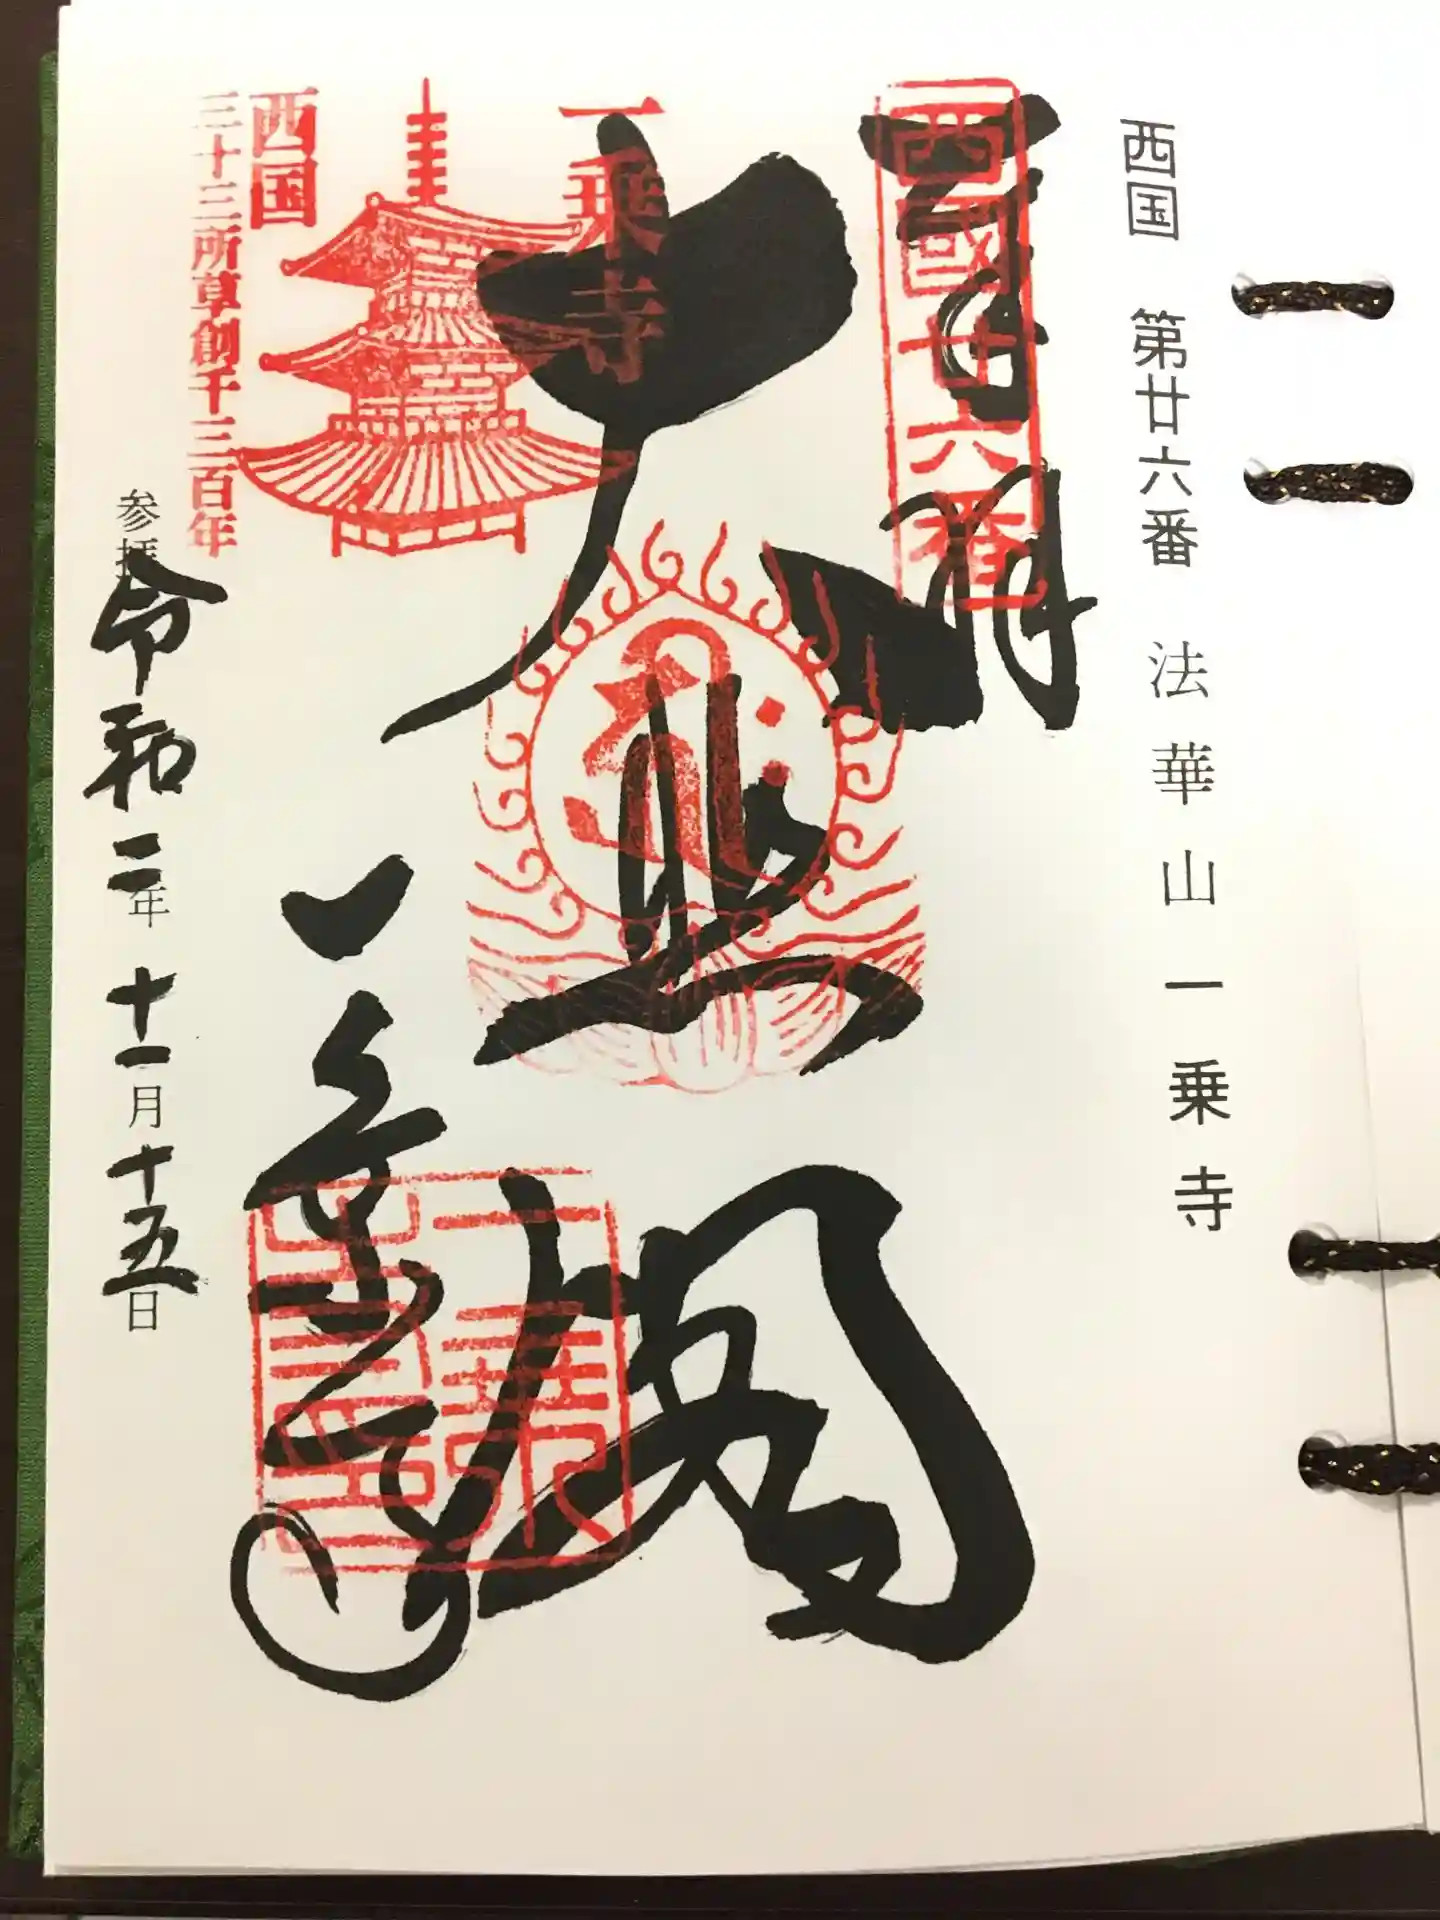 西国 第廿六番 法華山一乗寺
西國廿六番
奉拝
大悲閣
一乗寺
一乗寺
西国
三十三所草創千三百年
参拝 令和二年 十一月十五日